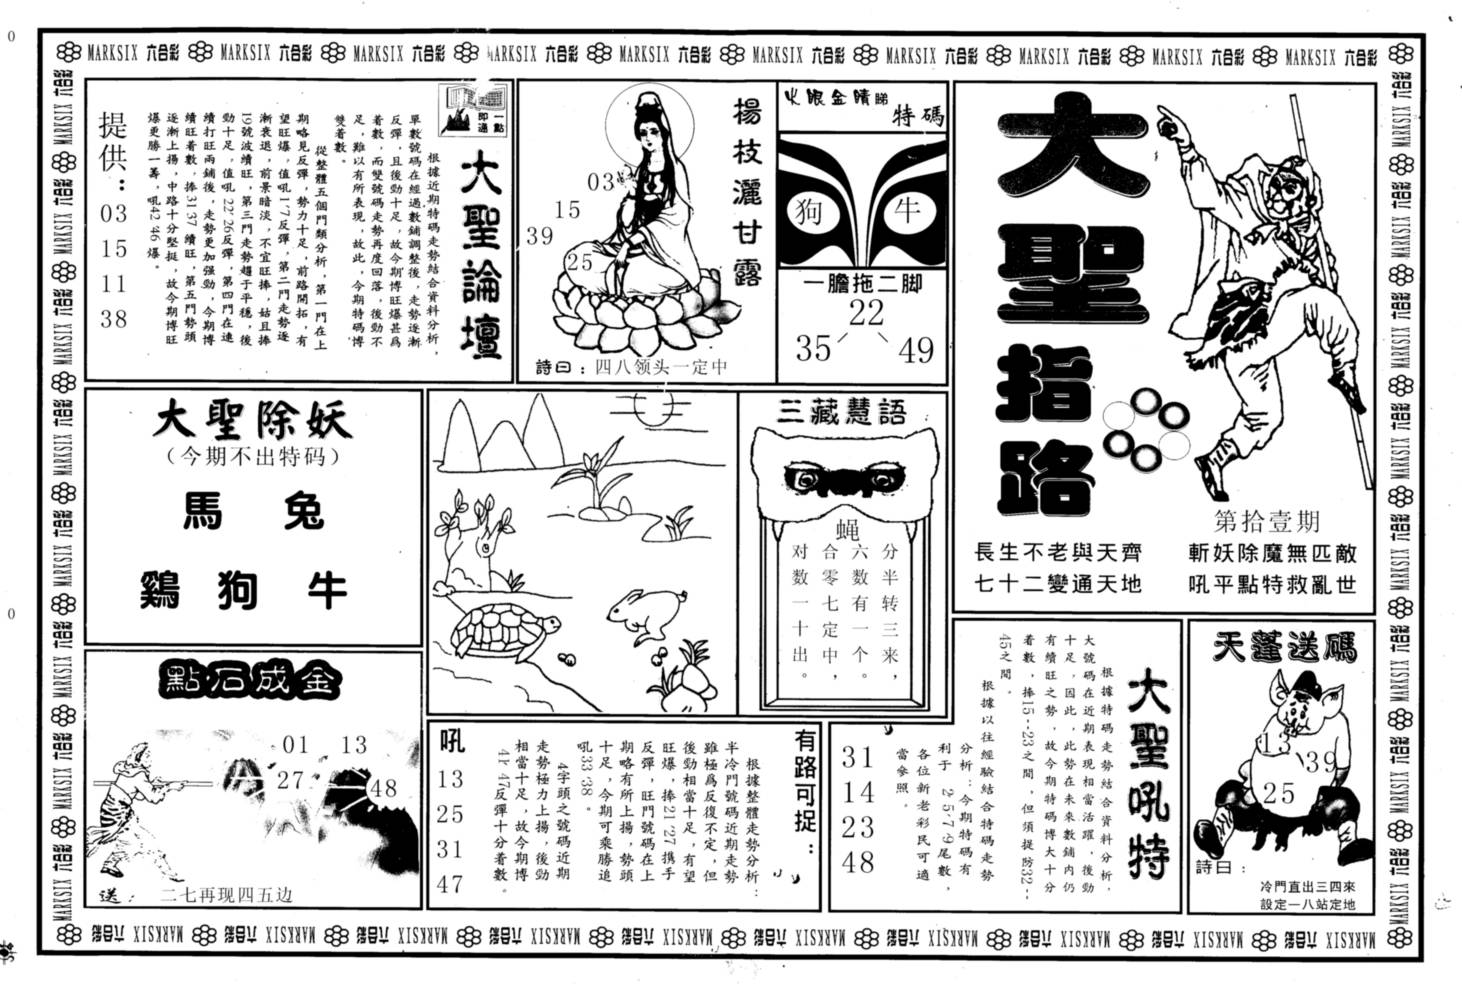 MARKSIX 六合彩 MARKSIX 六合彩 MARKSIX 六合彩 MARKSIX 六合彩 MARKSIX 六合彩 MARKSIX 六合彩 MARKSIX 六合彩 MARKSIX 六合彩 MARKSIX 六合彩 MARKSIX 六合彩
大聖指路
第拾壹期
長生不老與天齊
七十二變通天地
斬妖除魔無匹敵
吼平點特救亂世
火眼金睛睇
特碼
狗
牛
一膽拖二脚
22
35
49
揚枝灑甘露
03
15
39
25
詩曰：四八领头一定中
一點即通
大聖論壇
根據近期特碼走勢結合資料分析，
單數號碼在經過數鋪調整後，走勢逐漸
反彈，且後勁十足，故今期博旺爆甚爲
着數，而雙號碼走勢再度回落，後勁不
足，難以有所表現，故此，今期特碼博
雙着數。
從整體五個門類分析，第一門在上
期略見反彈，勢力十足，前路開拓，有
望旺爆，值吼1、7反彈，第二門走勢逐
漸衰退，前景暗淡，不宜旺捧，姑且捧
19號波續旺，第三門走勢趨于平穩，後
勁十足，值吼22、26反彈，第四門在連
續打旺兩鋪後，走勢更加强勁，今期博
續旺着數，捧31、37續旺，第五門勢頭
逐漸上揚，中路十分堅挺，故今期博旺
爆更勝一籌，吼42、46爆。
提供：
03
15
11
38
大聖除妖
（今期不出特码）
馬 兔
鷄 狗 牛
三藏慧語
蝇
分半转三来，
六数有一个。
合零七定中，
对数一十出。
點石成金
01 13
27
48
送：二七再现四五边
有路可捉：
根據整體走勢分析：
半冷門號碼近期走勢
雖極爲反復不定，但
後勁相當十足，有望
旺爆，捧21、27携手
反彈，旺門號碼在上
期略有所上揚，勢頭
十足，今期可乘勝追
吼33、38。
4字頭之號碼近期
走勢極力上揚，後勁
相當十足，故今期博
41、47反彈十分着數。
吼
13
25
31
47
大聖吼特
根據特碼走勢結合資料分析，
大號碼在近期表現相當活躍，後勁
十足，因此，此勢在未來數鋪内仍
有續旺之勢，故今期特碼博大十分
着數，捧15--23之間，但須提防32--
45之間。
根據以往經驗結合特碼走勢
分析：今期特碼有
利于2、5、7、9尾數，
各位新老彩民可適
當參照。
31
14
23
48
天蓬送碼
13
39
25
詩曰：
冷門直出三四來
設定一八站定地